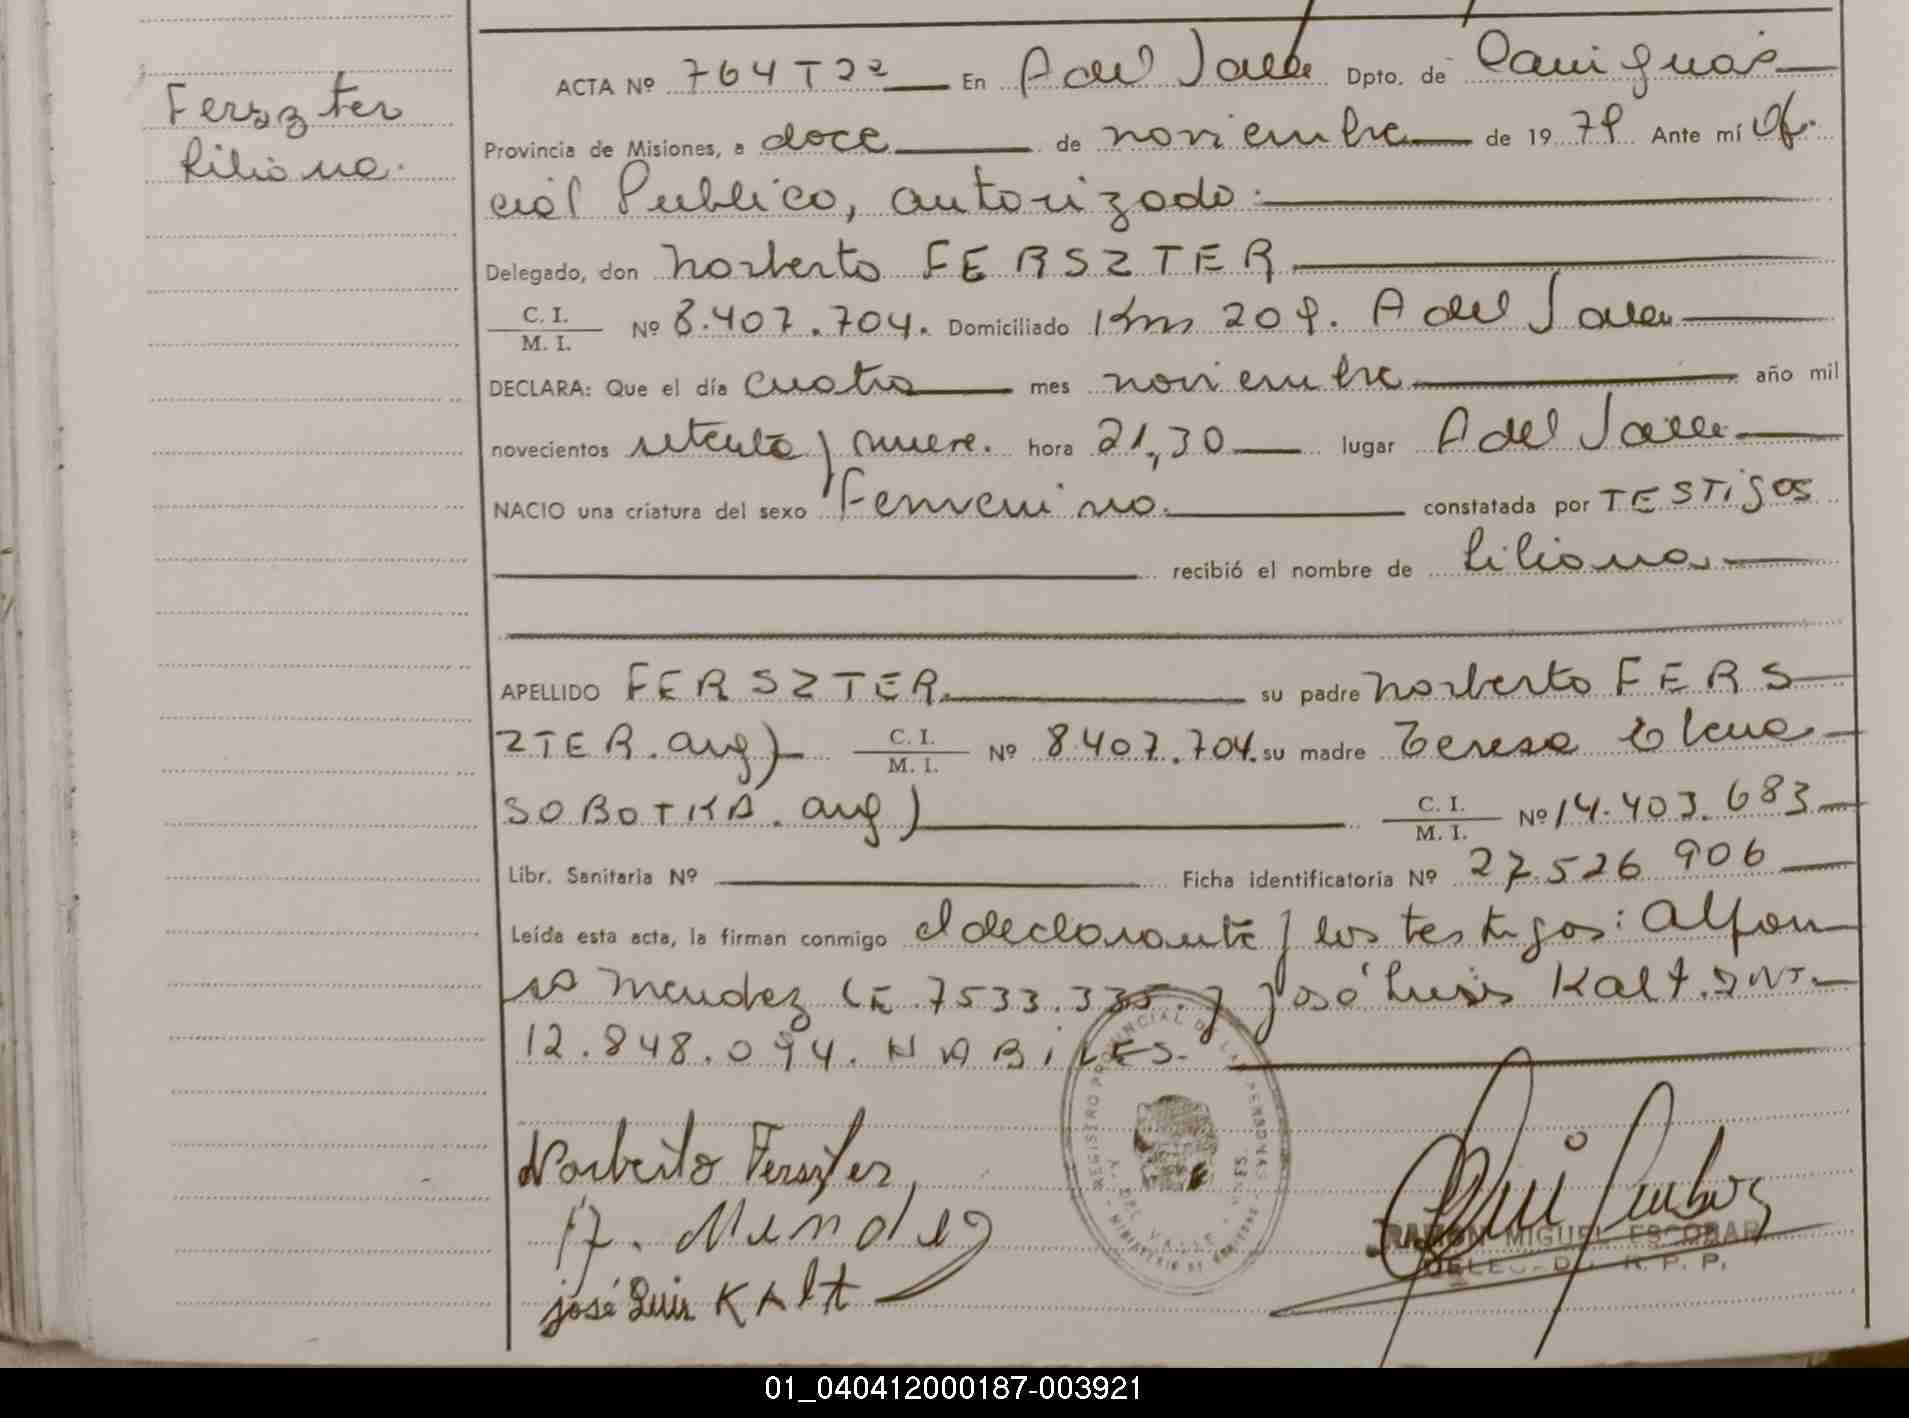 Ferszter
Liliana.
ACTA Nº 764 T 2º En A del Valle Dpto. de Cainguas
Provincia de Misiones, a doce de noviembre de 1979 Ante mí Ofi-
cial Publico, autorizado.
Delegado, don Norberto FERSZTER
C. I. / M. I. Nº 8.407.704. Domiciliado Km 209. A del Valle
DECLARA: Que el día cuatro mes noviembre año mil
novecientos setenta y nueve. hora 21,30 lugar A del Valle
NACIO una criatura del sexo Femenino. constatada por TESTigos
recibió el nombre de Liliana
APELLIDO FERSZTER. su padre Norberto FERS
ZTER. arg) C. I. / M. I. Nº 8.407.704. su madre Teresa Elena
SOBOTKA. arg) C. I. / M. I. Nº 14.403.683
Libr. Sanitaria Nº Ficha identificatoria Nº 27.526 906
Leída esta acta, la firman conmigo el declarante y los testigos: Alfon
so Mendez LE 7533.335. y José Luis Kalt. DNI.
12.848.094. HABiLES.
REGISTRO PROVINCIAL DE LAS PERSONAS
A. DEL VALLE - MNES.
MINISTERIO DE GOBIERNO
Norberto Ferszter
A. Mendez
José Luis KAlt
RAMON MIGUEL ESCOBAR
DELEGADO R. P. P.
01_040412000187-003921